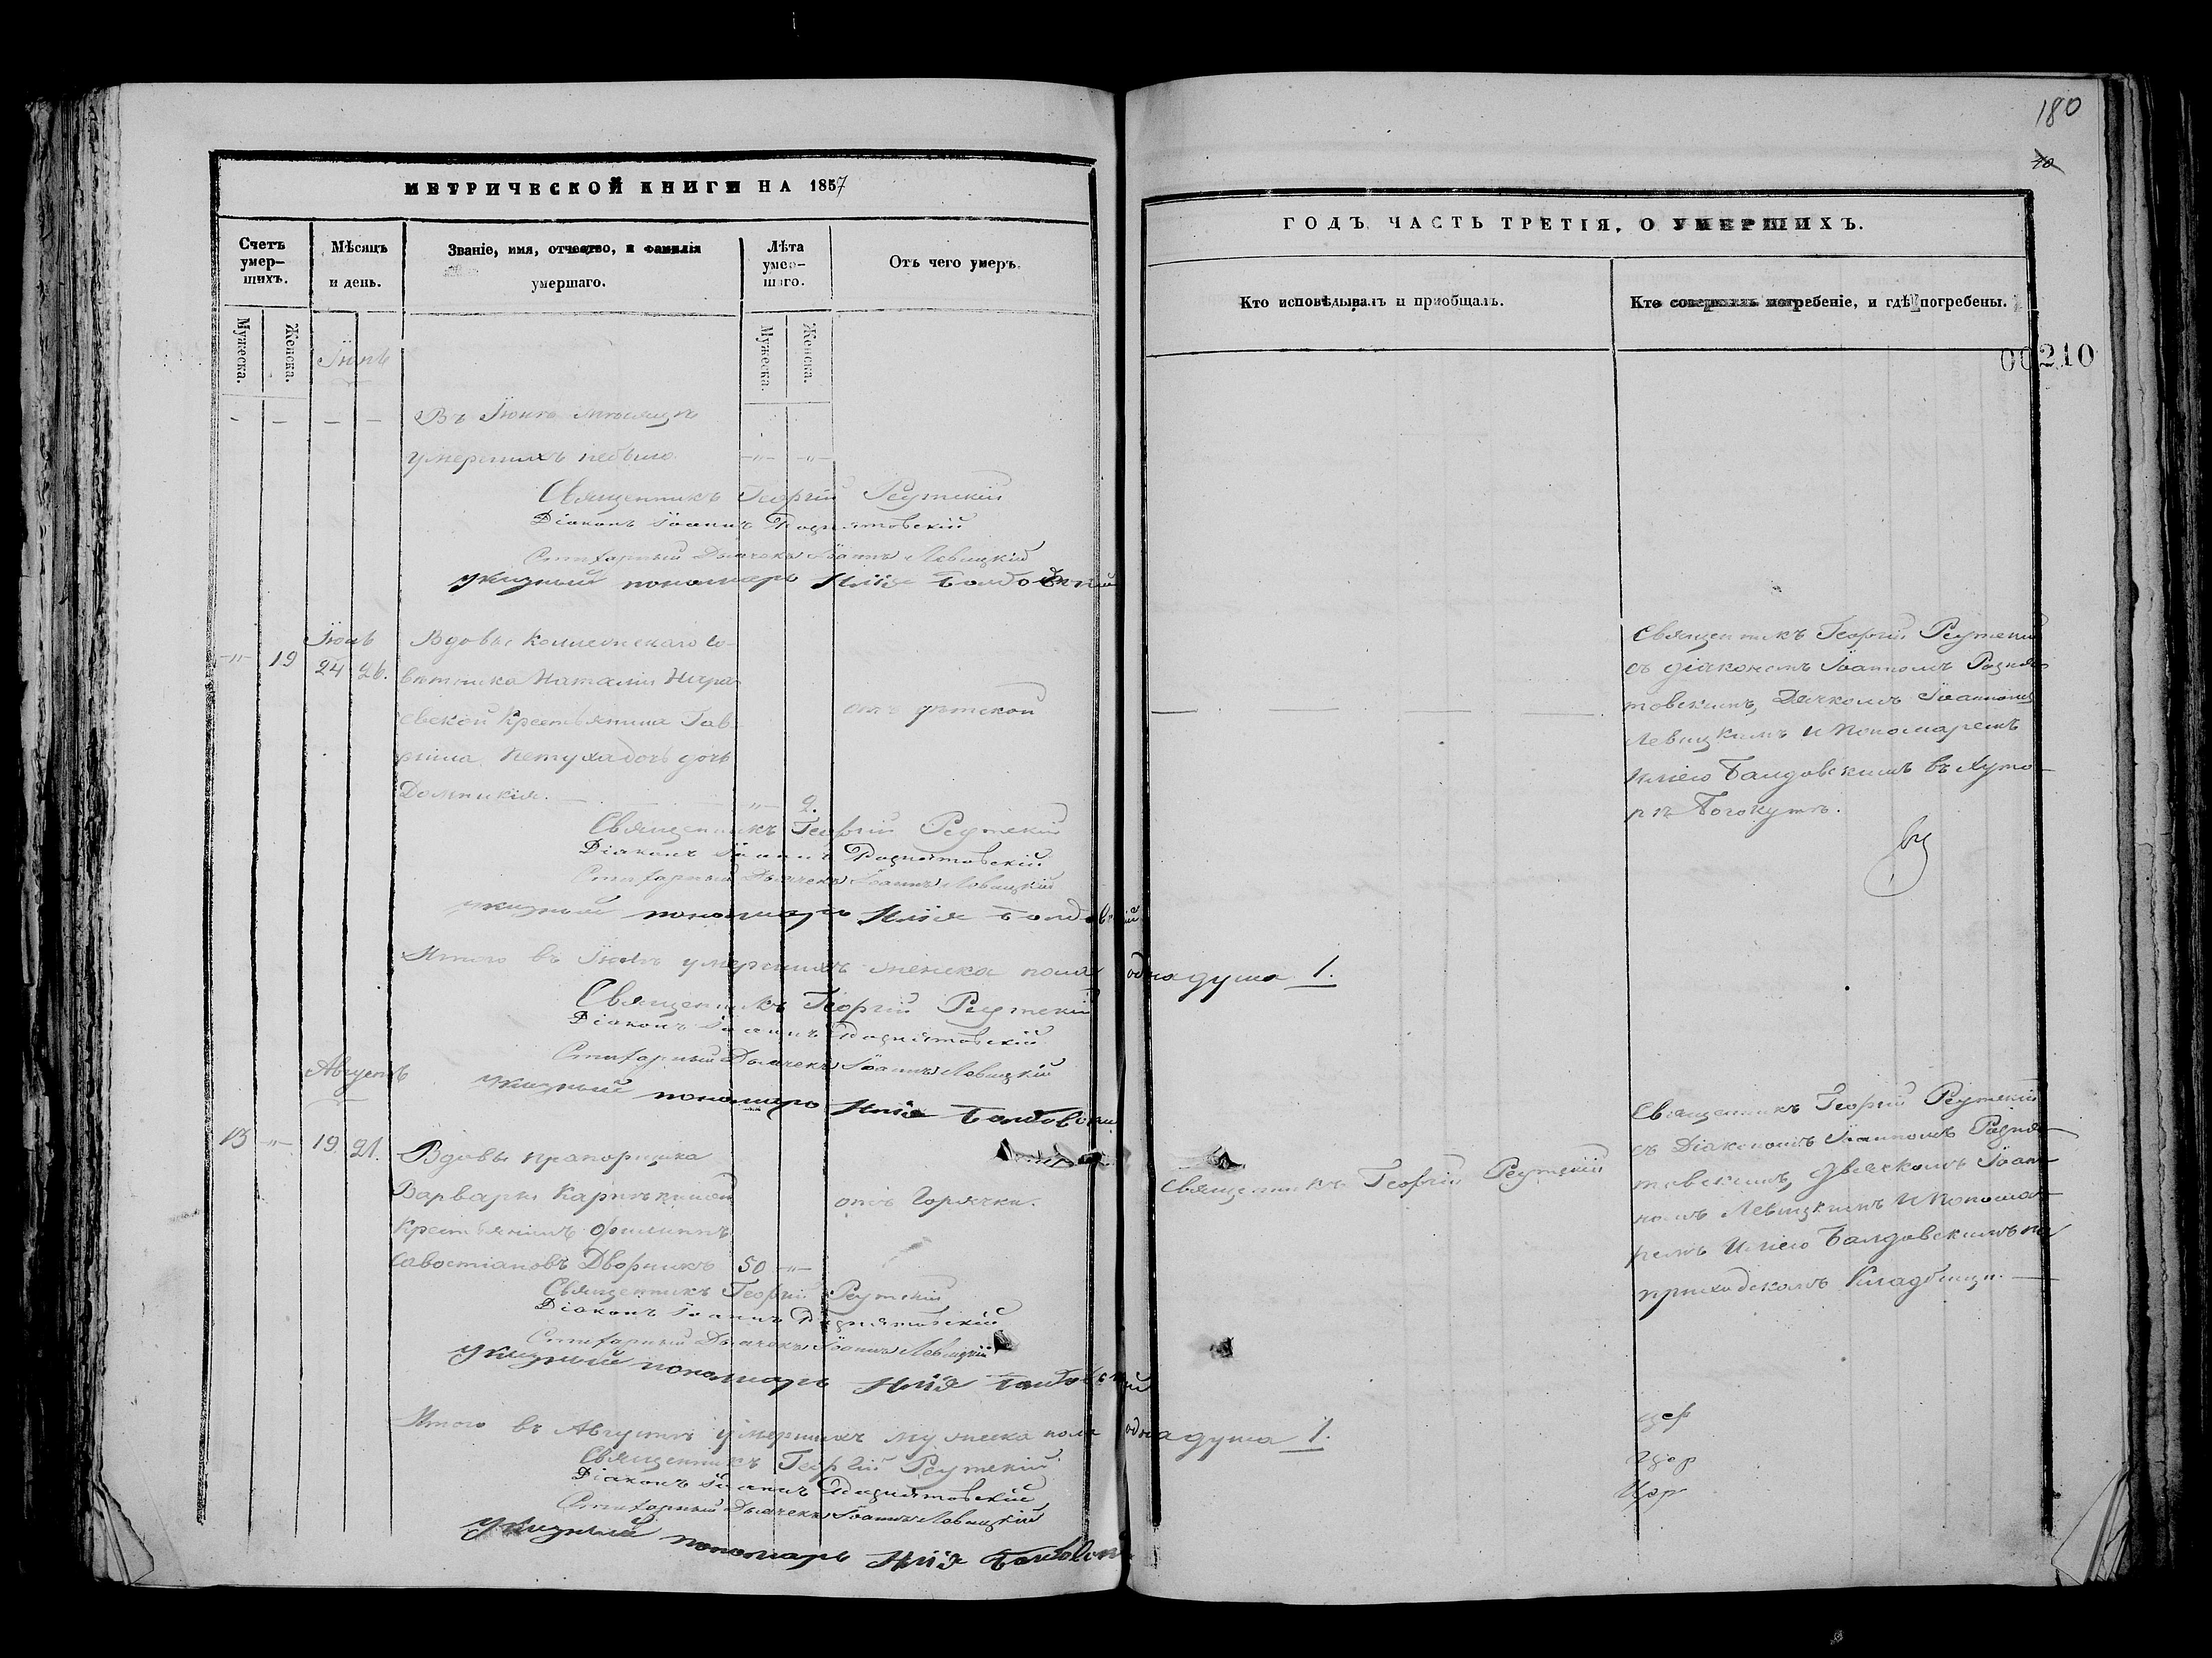 180
МЕТРИЧЕСКОЙ КНИГИ НА 1857
Счетъ умер-шихъ.
Мѣсяцъ и день.
Званіе, имя, отчество, и фамилія умершаго.
Лѣта умер-шаго.
Отъ чего умеръ.
Мужеска.
Женска.
Мужеска.
Женска.
Іюнь
Въ Іюнѣ мѣсяцѣ
умершихъ небыло.
Священникъ Георгій Реутскій
Діаконъ Іоаннъ Рознятовскій
Стихарный Дьячекъ Іоаннъ Левицкій
указный пономарь Илія Балдовскій
Іюль
19 24 26.
Вдовы Коллежскаго Со-
вѣтника Наталіи
евской Крестьянина Гав-
ріила Петуха дочь
Домникія. 2.
отъ дѣтской
Священникъ Георгій Реутскій
Діаконъ Іоаннъ Рознятовскій
Стихарный Дьячекъ Іоаннъ Левицкій
указный пономарь Илія Балдовскій
Итого въ Іюлѣ умершихъ женска пола одна душа 1.
Священникъ Георгій Реутскій
Діаконъ Іоаннъ Рознятовскій
Стихарный Дьячекъ Іоаннъ Левицкій
указный пономарь Илія Балдовскій
Августъ
13 19 21.
Вдовы прапорщика
Варвары
Крестьянинъ Филиппъ
Савостіановъ Дворникъ 50
отъ Горячки.
Священникъ Георгій Реутскій
Діаконъ Іоаннъ Рознятовскій
Стихарный Дьячекъ Іоаннъ Левицкій
указный пономарь Илія Балдовскій
Итого въ Августѣ умершихъ мужеска пола одна душа 1.
Священникъ Георгій Реутскій
Діаконъ Іоаннъ Рознятовскій
Стихарный Дьячекъ Іоаннъ Левицкій
указный пономарь Илія Балдовскій
ГОДЪ ЧАСТЬ ТРЕТІЯ, О УМЕРШИХЪ.
Кто исповѣдывалъ и пріобщалъ.
Кто совершалъ погребеніе, и гдѣ погребены.
00210
Священникъ Георгій Реутскій
съ діакономъ Іоанномъ Розня-
товскимъ, Дячкомъ Іоанномъ
Левицкимъ и Пономаремъ
Иліею Балдовскимъ въ Хуто-
рѣ
Священникъ Георгій Реутскій
Священникъ Георгій Реутскій
съ Діакономъ Іоанномъ Розня-
товскимъ, Дьячкомъ Іоан-
номъ Левицкимъ и Понома-
ремъ Иліею Балдовскимъ на
приходскомъ Кладбищѣ.